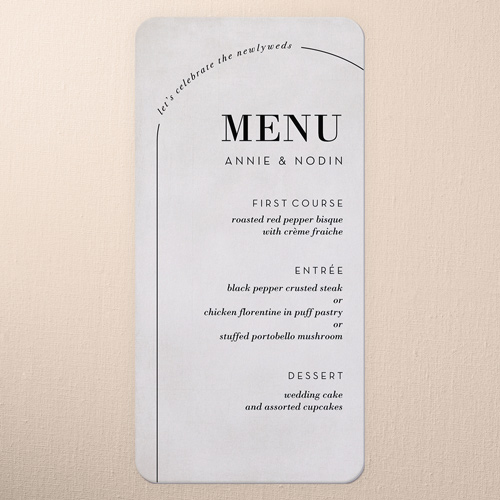 let's celebrate the newlyweds
MENU
ANNIE & NODIN
FIRST COURSE
roasted red pepper bisque
with crème fraiche
ENTRÉE
black pepper crusted steak
or
chicken florentine in puff pastry
or
stuffed portobello mushroom
DESSERT
wedding cake
and assorted cupcakes